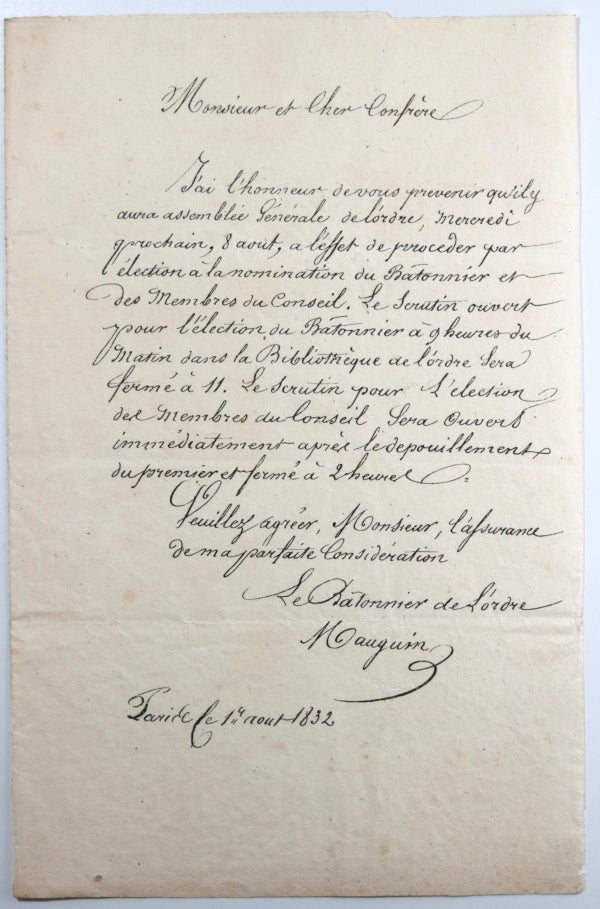 Monsieur et Cher Confrère
J'ai l'honneur de vous prevenir qu'il y
aura assemblée Générale de l'ordre, Mercredi
prochain, 8 août, a l'effet de proceder par
élection à la nomination du Bâtonnier et
des Membres du Conseil. Le Scrutin ouvert
pour l'élection du Bâtonnier à 9 heures du
Matin dans la Bibliothèque de l'ordre Sera
fermé à 11. Le Scrutin pour L'élection
des Membres du Conseil Sera Ouvert
immédiatement après le depouillement
du premier et fermé à 2 heures.
Veuillez agréer, Monsieur, l'assurance
de ma parfaite Considération
Le Bâtonnier de L'ordre
Mauguin
Paris le 1er aout 1832